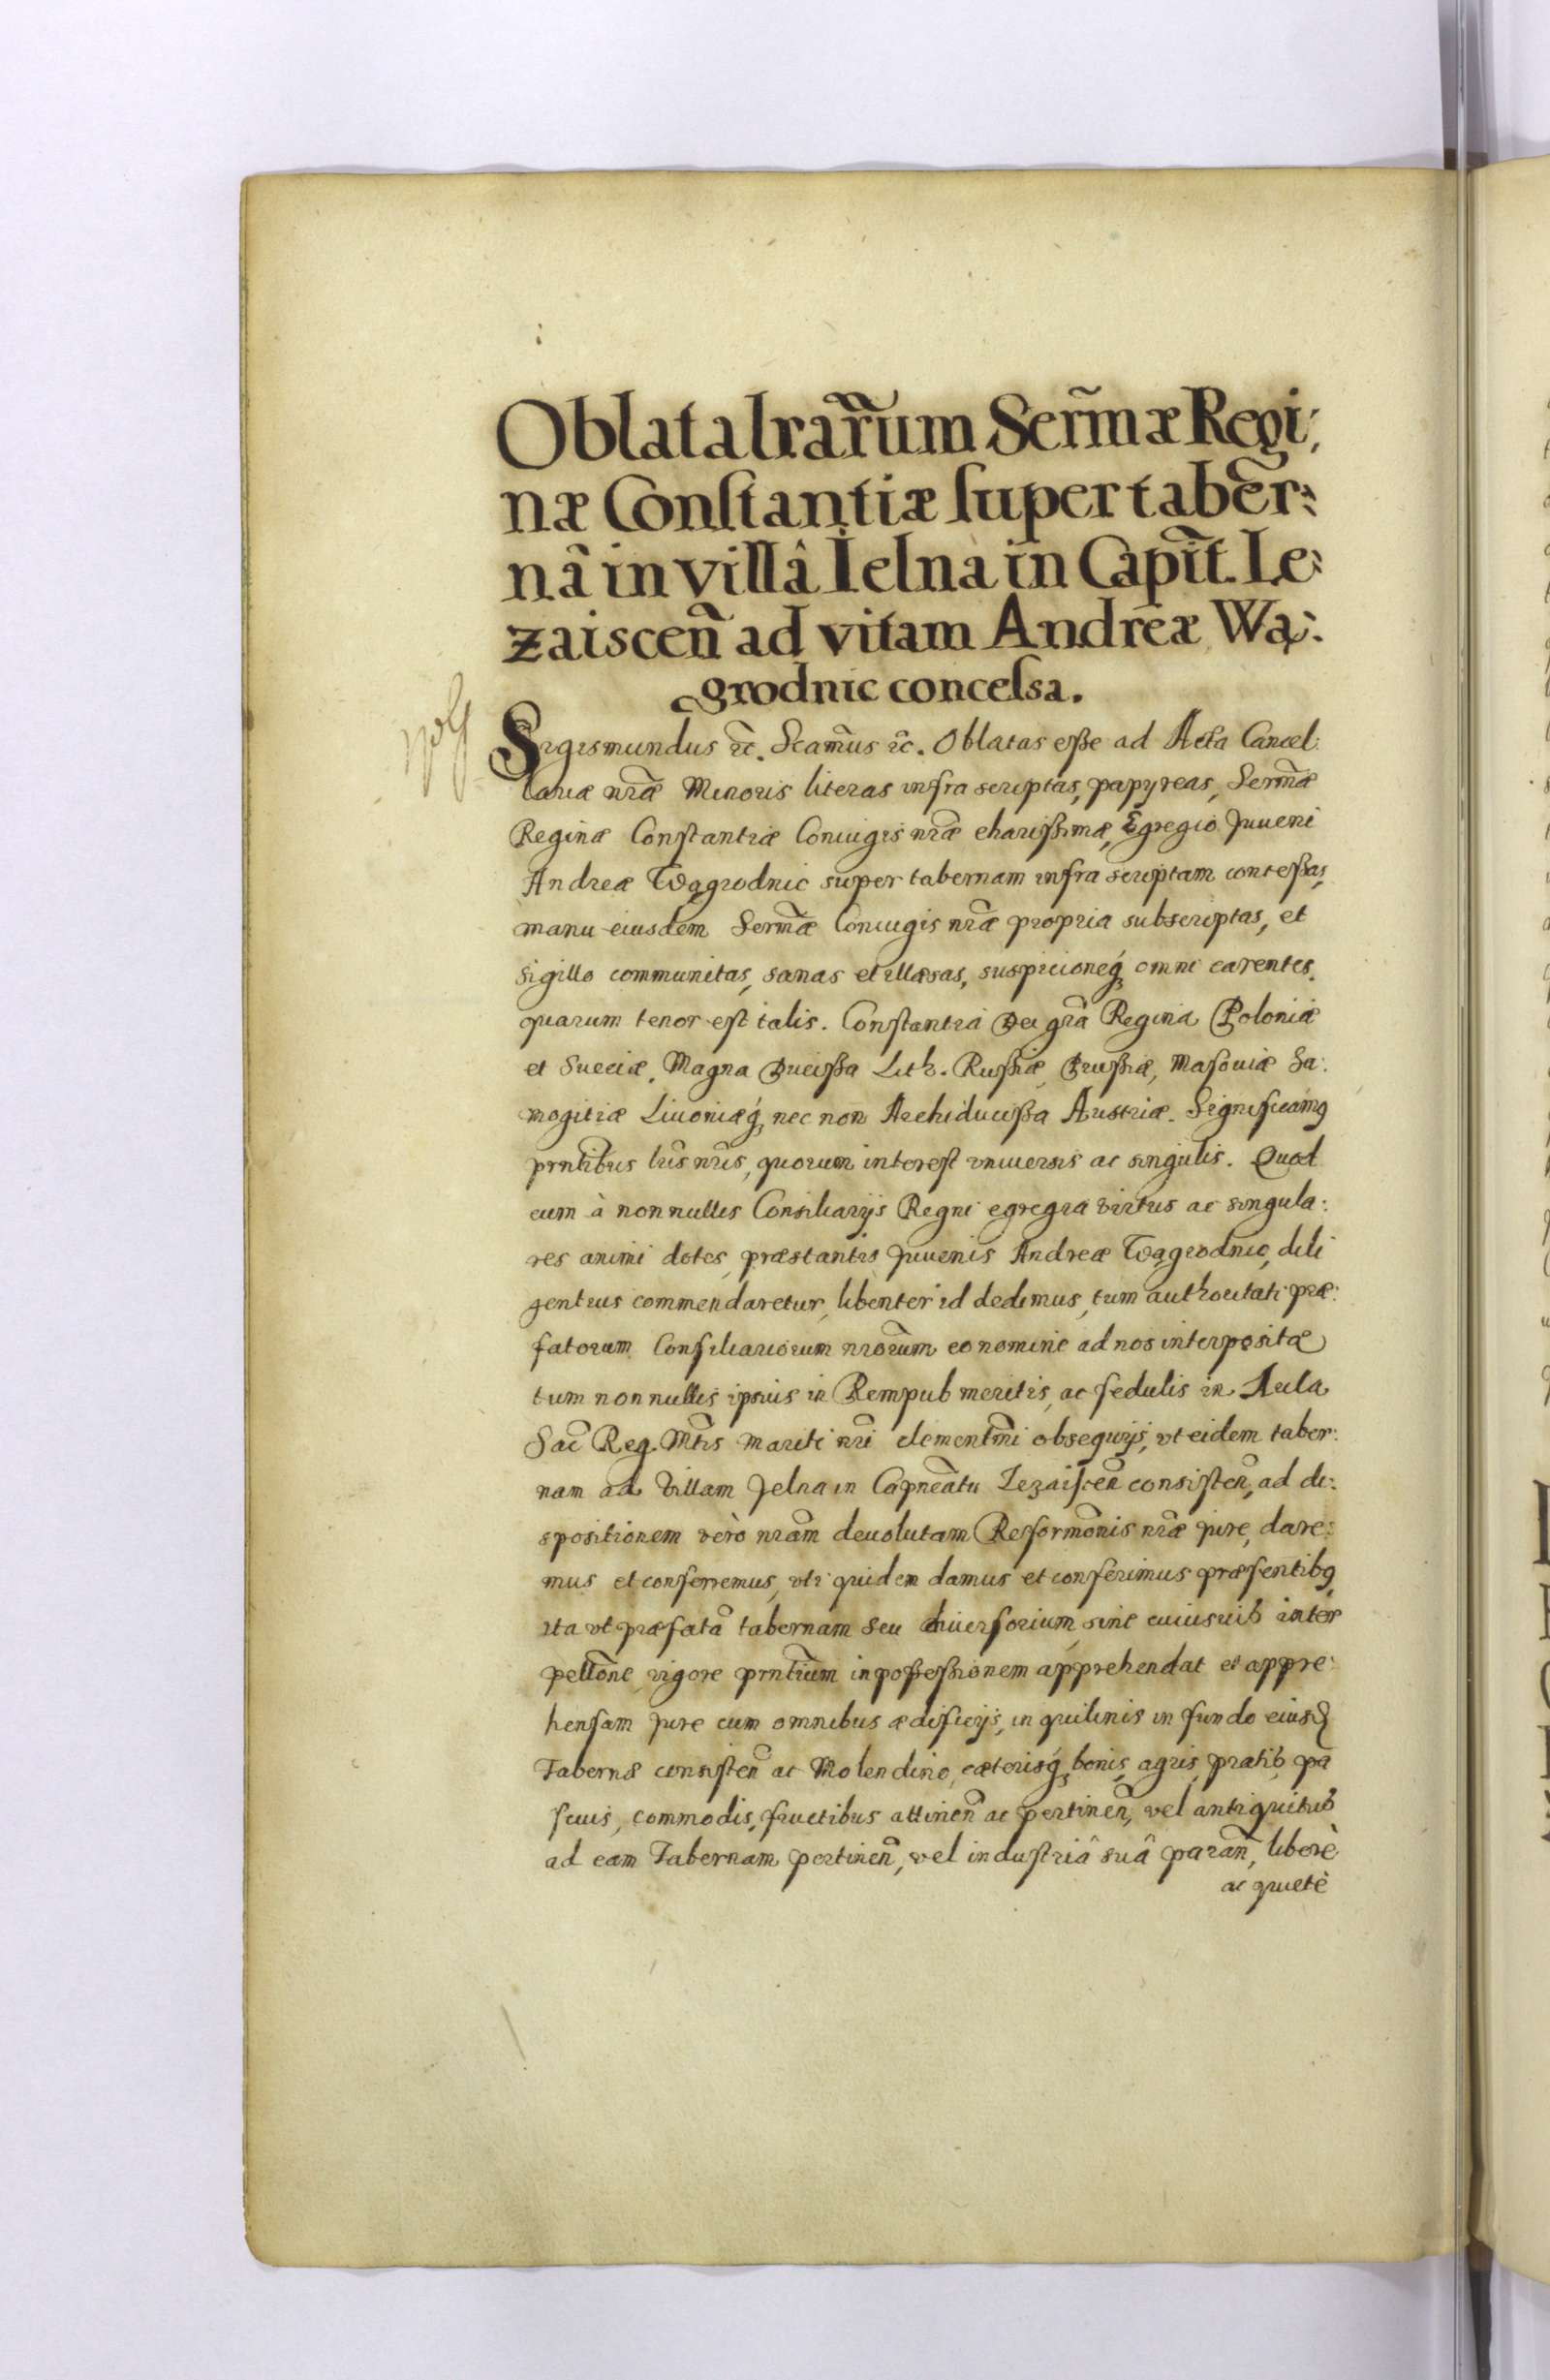 Oblata lrarũm Serm̃æ Regi;
næ Conſtantiæ ſuper taber̃:
nâ in villâ Ielna in Capit̃. Le:
zaiscen̄ ad vitam Andreæ Wą:
grodnic conceſsa.
Sigismundus ꝛc̃. Scam̃us ꝛc̃. Oblatas eſse ad Acta Cancel:
lariæ nr̃æ Minoris literas infra scriptas, papyreas, Serm̃æ
Reginæ Conſtantiæ Coniugis nr̃æ chariſsimæ, Egregio Juueni
Andreæ Wągrodnic super tabernam infra scriptam conceſsas,
manu eiusdem Serm̃æ Coniugis nr̃æ propria subscriptas, et
sigillo communitas, sanas et illæsas, suspicioneq́ꝫ omni carentes.
quarum tenor eſt talis. Conſtantia Dei gr̃a Regina Poloniæ
et Sueciæ, Magna Duciſsa Lith. Ruſsiæ, Pruſsiæ, Maſouiæ Sa:
mogitiæ Liuoniæq́ꝫ nec non Archiduciſsa Austriæ. Significam̃9
prñtibus lr̃is nr̃is, quorum intereſt vniuersis ac singulis. Quod
cum à nonnullis Consiliarijs Regni egregia virtus ac singula:
res animi dotes, præstantis Juuenis Andreæ Wągrodnic, dili
gentius commendaretur, libenter id dedimus, tum authoritati præ:
fatorum Conſiliariorum nrõrum eo nomine ad nos interpositæ
tum nonnullis ipsius in Rempub meritis, ac ſedulis in Aula
Sac̃ Reg. Mt̃is Mariti nr̃i clementm̃i obsequijs, vt eidem taber:
nam ad Villam Jelna in Capneãtu Lezaiſcen̄ consiſten̄, ad di:
spositionem verò nram̃ deuolutam Refformõnis nr̃æ jure, dare:
mus et conferremus, vti quidem damus et conferimus præſentib9
ita vt præfatã tabernam seu diuerſorium, sine cuiusuis inter
pellõne vigore prñtium in poſseſsionem apprehendat et appre:
henſam Jure cum omnibus ædificijs, inquilinis in fundo eiusd
Tabernæ consiſten̄ ac Molendino, cæterisq́ꝫ bonis, agris, pratis, pa
ſcuis, commodis, fructibus attinen̄ ac pertinen̄, vel antiquitus
ad eam Tabernam pertinen̄, vel induſtriâ suâ paran̄, liberè
ac quietè